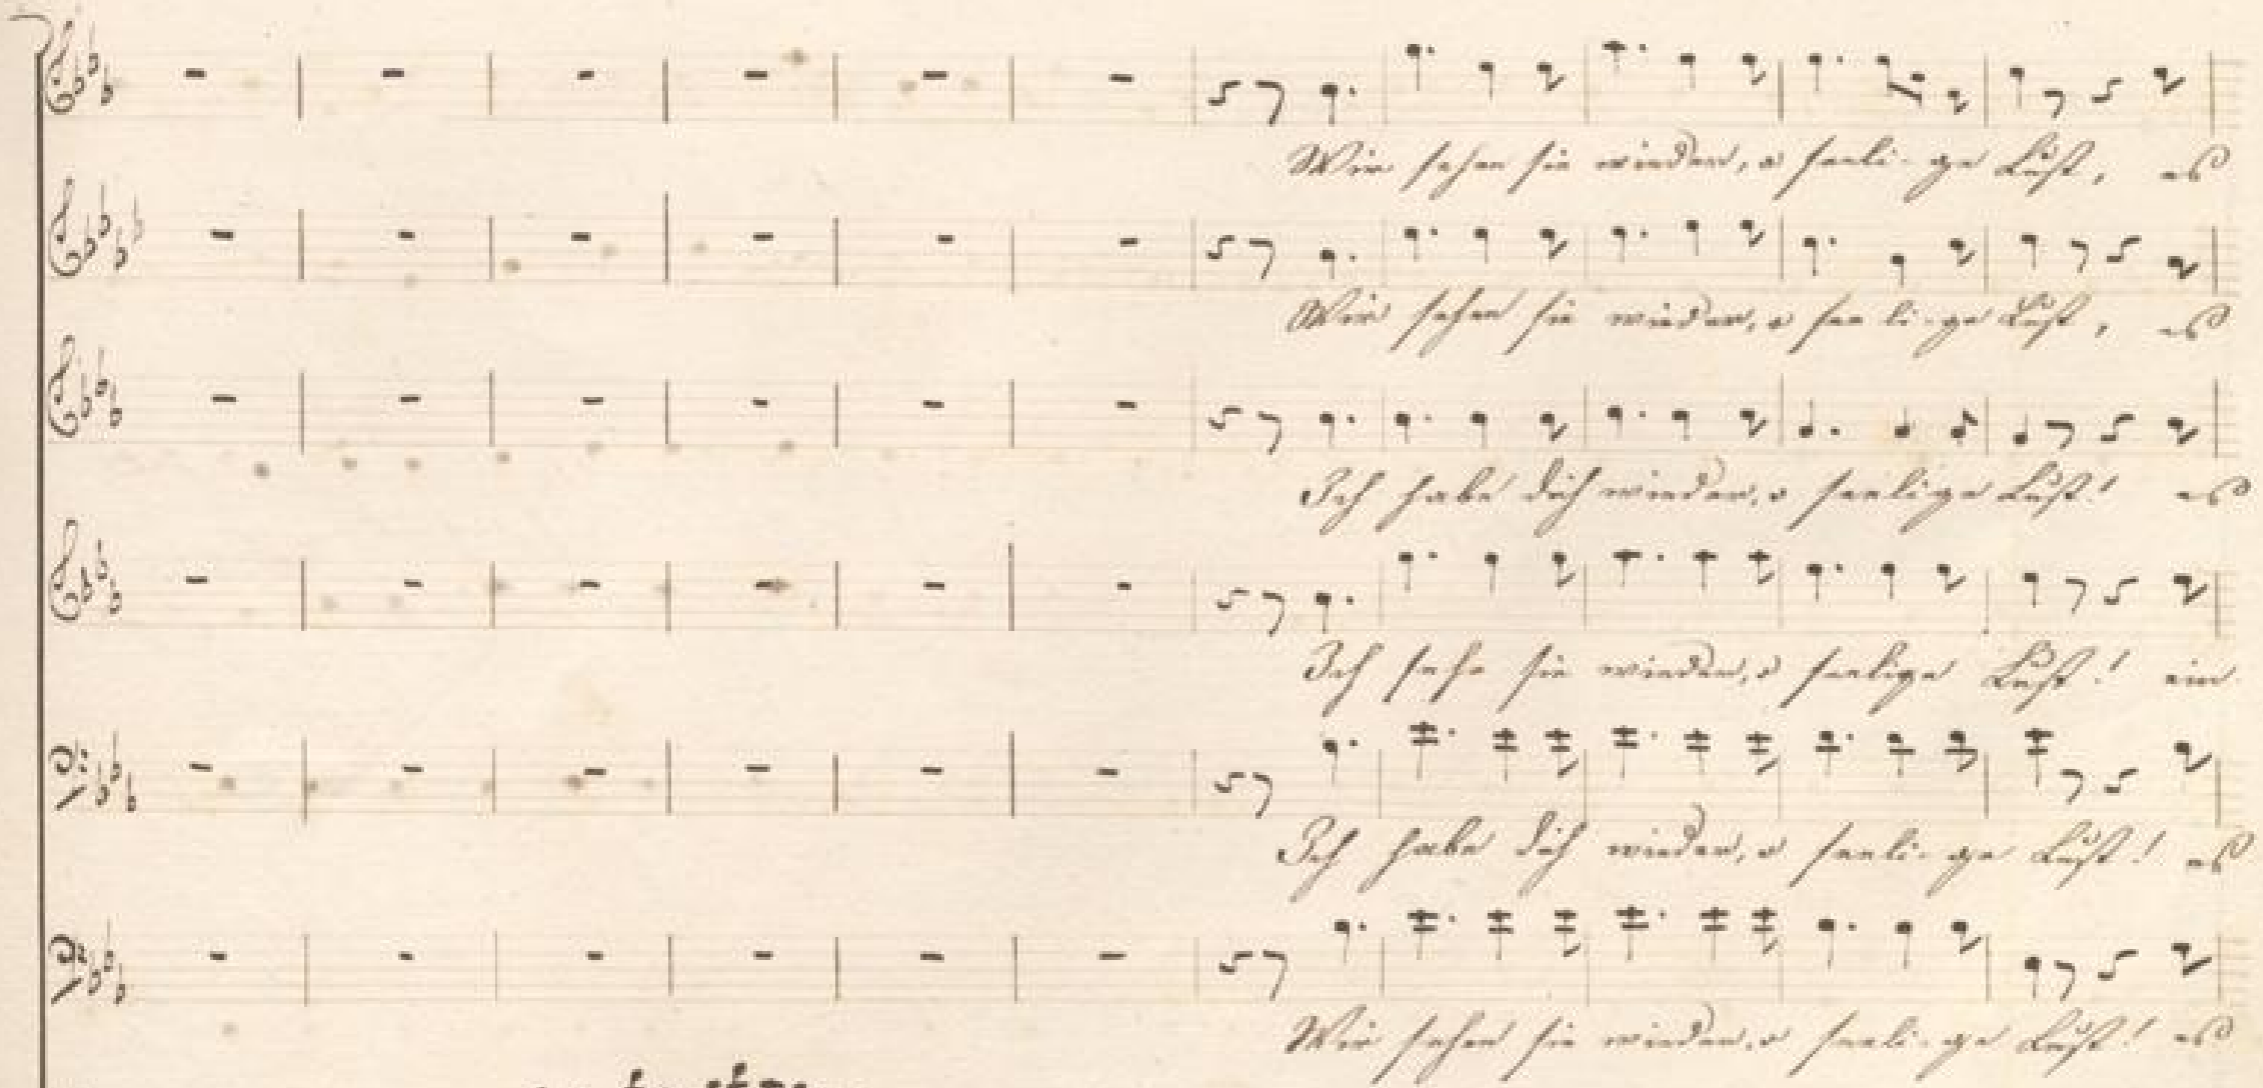 Wir sehen sie wieder, o seeli-ge Lust, es
Wir sehen sie wieder, o seeli-ge Lust, es
Ich habe dich wieder, o seelige Lust! es
Ich sehe sie wieder, o seelige Lust! ein
Ich habe dich wieder, o seeli-ge Lust! es
Wir sehen sie wieder, o seeli-ge Lust! es